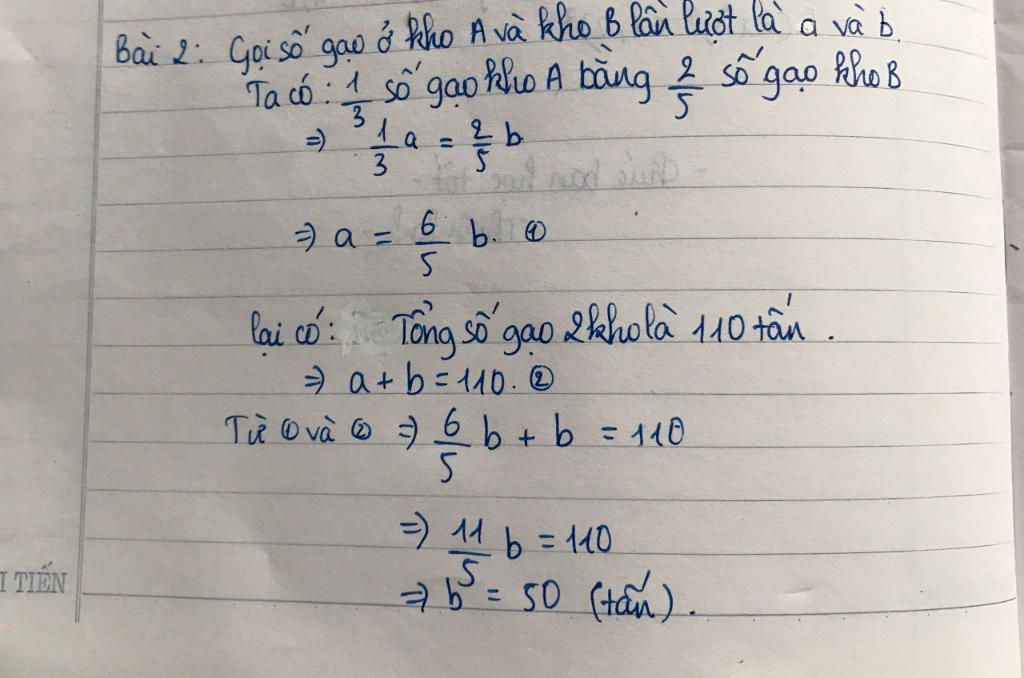 Bài 2: Gọi số gạo ở kho A và kho B lần lượt là a và b.
Ta có: 1/3 số gạo kho A bằng 2/5 số gạo kho B
⇒ 1/3 a = 2/5 b
- Chúc bạn học tốt -
⇒ a = 6/5 b. ①
lại có: Tổng số gạo 2 kho là 110 tấn.
⇒ a + b = 110. ②
Từ ① và ② ⇒ 6/5 b + b = 110
⇒ 11/5 b = 110
⇒ b = 50 (tấn).
I TIẾN